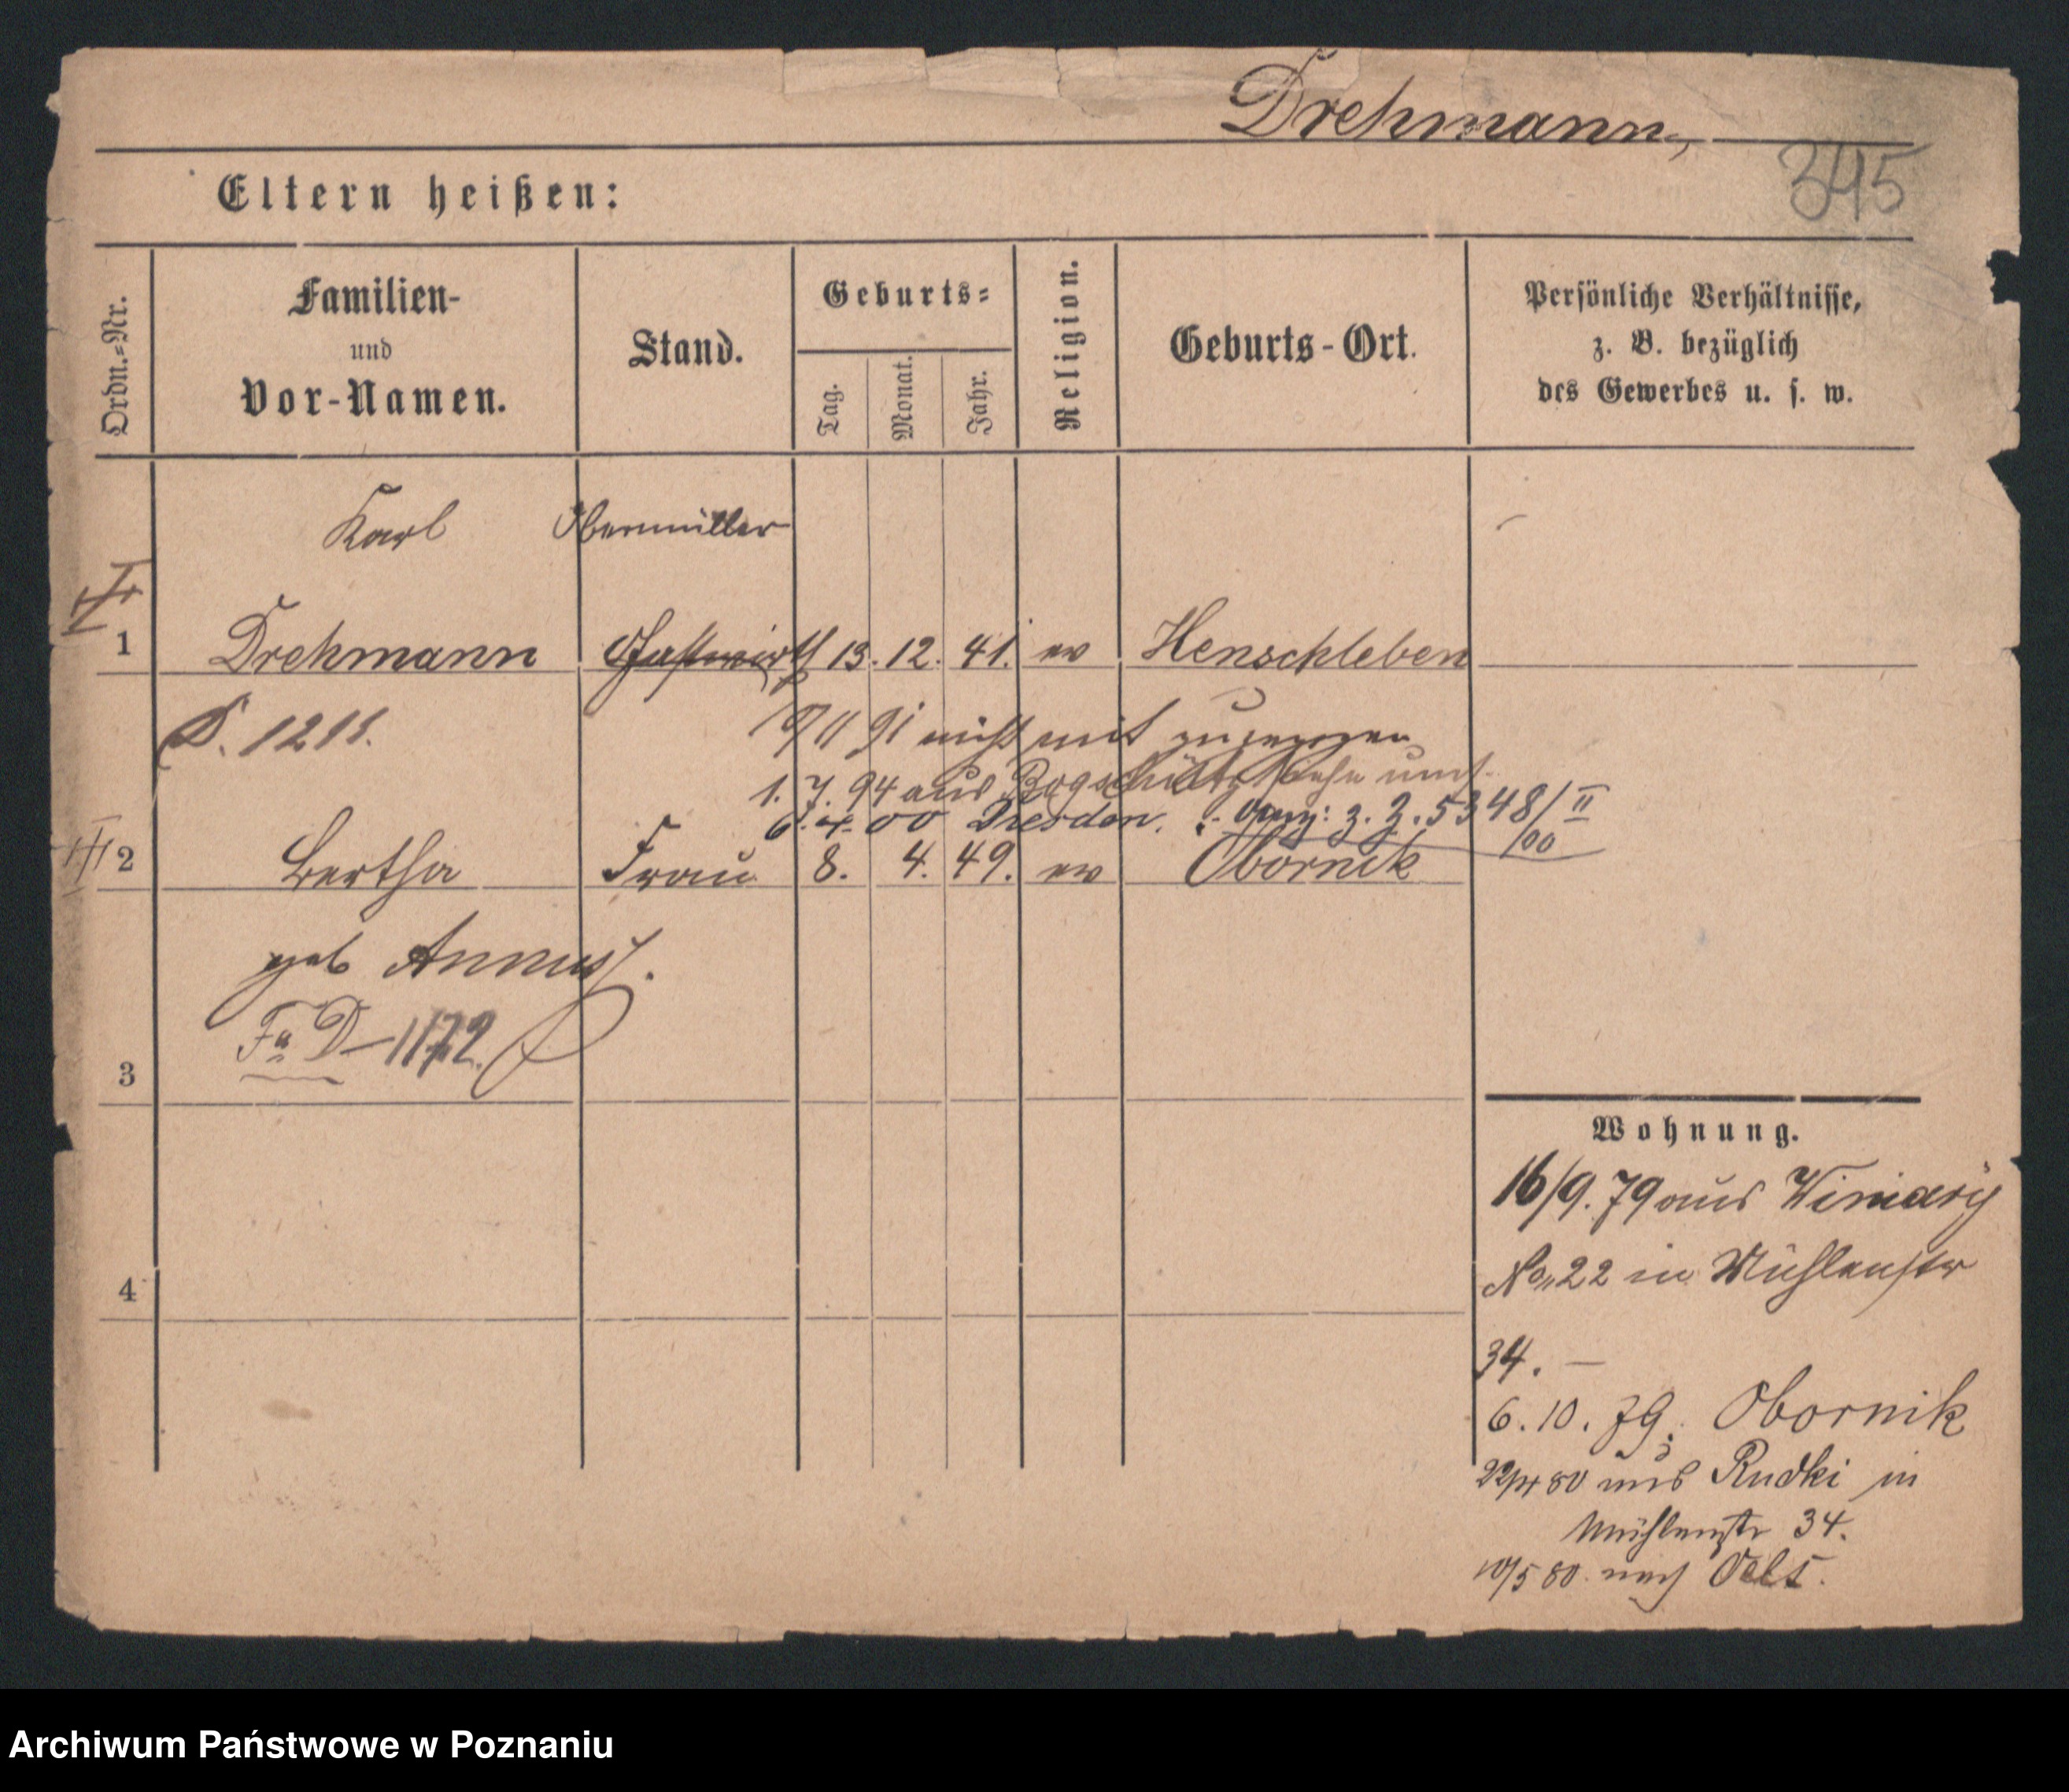 Drehmann,
345
Eltern heißen:
Ordn.=Nr.
Familien-
und
Vor-Namen.
Stand.
Geburts=
Tag.
Monat.
Jahr.
Religion.
Geburts-Ort.
Persönliche Verhältnisse,
z. B. bezüglich
des Gewerbes u. s. w.
Karl Obermüller
1 Drehmann Gastwirth 13. 12. 41. ev Henschleben
D. 1211.
91 nicht mit zugezogen
1. 7. 94 aus Bogschütz siehe
6. 4. 00 Dresden. 3. 5348/II
00
2 Bertha Frau 8. 4. 49. ev Obornik
geb Annuss.
Fa D-1172.
3
4
Wohnung.
16/9. 79 aus Winiary
No 22 in Mühlenstr
34. —
6. 10. 79. Obornik
22/4 80 aus Rudki in
Mühlenstr 34.
10/5 80. nach Oels.
Archiwum Państwowe w Poznaniu